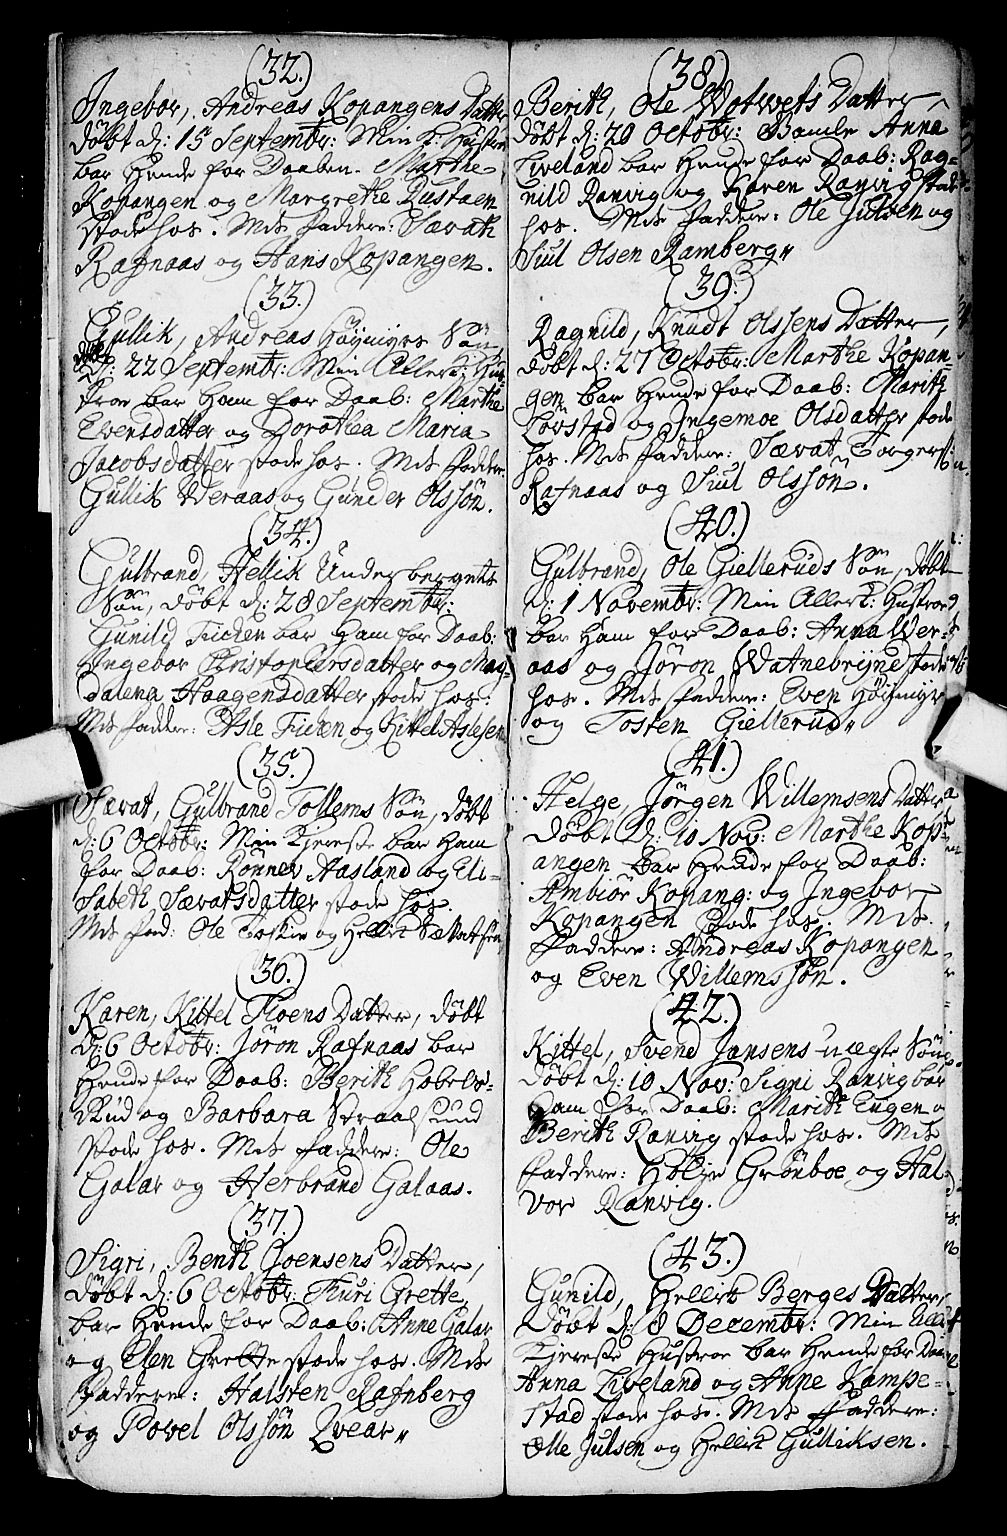 (32.)
Ingebor, Andreas Kopangens Datter
döbt d: 15 Septembr: Min K: Hustru
bar Hende for Daaben. Marthe
Kopangen og Margrethe Rustaen
stode hos. Mds faddere: Sævath
Rafnaas og Hans Kopangen.
(33.)
Gullik, Andreas Höymyrs Sön,
döbt d: 22 Septembr: Min Allerk: Hu-
stroe bar Ham for Daab: Marthe
Evensdatter og Dorothea Maria
Jacobsdatter stode hos. Mds faddere
Gullik Weraas og Gunder Olssön.
(34.)
Gulbrand, Hellik Underbergets
Sön, döbt d: 28 Septembr:
Gunild Tueden bar Ham for Daab:
Ingebor Christophersdatter og Mag-
dalena Haagensdatter stode hos.
Mds fadder: Asle og Kittel Aslesen
(35.)
Sævat, Gulbrand Tollems Sön, döbt
d: 6 Octobr: Min Kjereste bar Ham
for Daab: Rönnev Aasland og Eli-
sabeth Sævatsdatter stode hos.
Mds fad: Ole og Hellik
(36.)
Karen, Kittel Floens Datter, döbt
d: 6 Octobr: Jöron Rafnaas bar
Hende for Daab: Berith Hobels-
Rud og Barbara Straalsund
stode hos. Mds faddere: Ole
Galar og Herbrand Galaas.
(37.)
Sigri, Benth Joensens Datter,
döbt d: 6 Octobr: Turi Grette
bar Hende for Daab: Anne Galar
og Elen Grette stode hos. Mds
Faddere: Halsten Rafnberg
og Povel Olssön Qvear,,
(38.)
Berith, Ole Wotvets Datter,
döbt d: 20 Octobr: Gamle Anna
Liveland bar Hende for Daab: Rag-
nild Ranvig og Karen Ranvig stode
hos. Mds faddere: Ole Julsen og
Siul Olsen Ramberg,,
(39.)
Ragnild, Knudt Olssens Datter,
döbt d: 27 Octobr: Marthe Kopan-
gen bar Hende for Daab: Marith
Lovstad og Ingemoe Olsdatter stode
hos. Mds faddere: Sævat Torgers:
Rafnaas og Siul Olssön.
(40.)
Gulbrand, Ole Gielleruds Sön, döbt
d: 1 Novembr: Min Allerk: Hustroe
bar Ham for Daab: Anna Wer-
aas og Jöron Watnebrynd stode
hos. Mds faddere: Even Höymyr
og Tosten Giellerud,,
(41.)
Helge, Jörgen Willemsens Datter
döbt D: 10 Nov: Marthe Kop-
angen bar Hende for Daab:
Ambiör Kopang: og Ingebor
Kopangen stode hos. Mds
Faddere: Andreas Kopangen
og Even Willemssön.
(42.)
Kittel, Svend Jansens uægte Sön
döbt d: 10 Nov: Signi Ranvig bar
Ham for Daab: Marith Engen o
Berith Ranvig stode hos. Mds
faddere: Grönboe og Hal-
vor Ranvig.
(43.)
Gunild, Hellik Berges Datter,
Döbt d: 8 Decembr: Min Allerk
Kjereste Hustroe bar Hende for Daa
Anna Liveland og Anne Kampe-
stad stode hos. Mds Faddere:
Olle Julsen og Hellik Gulliksen.